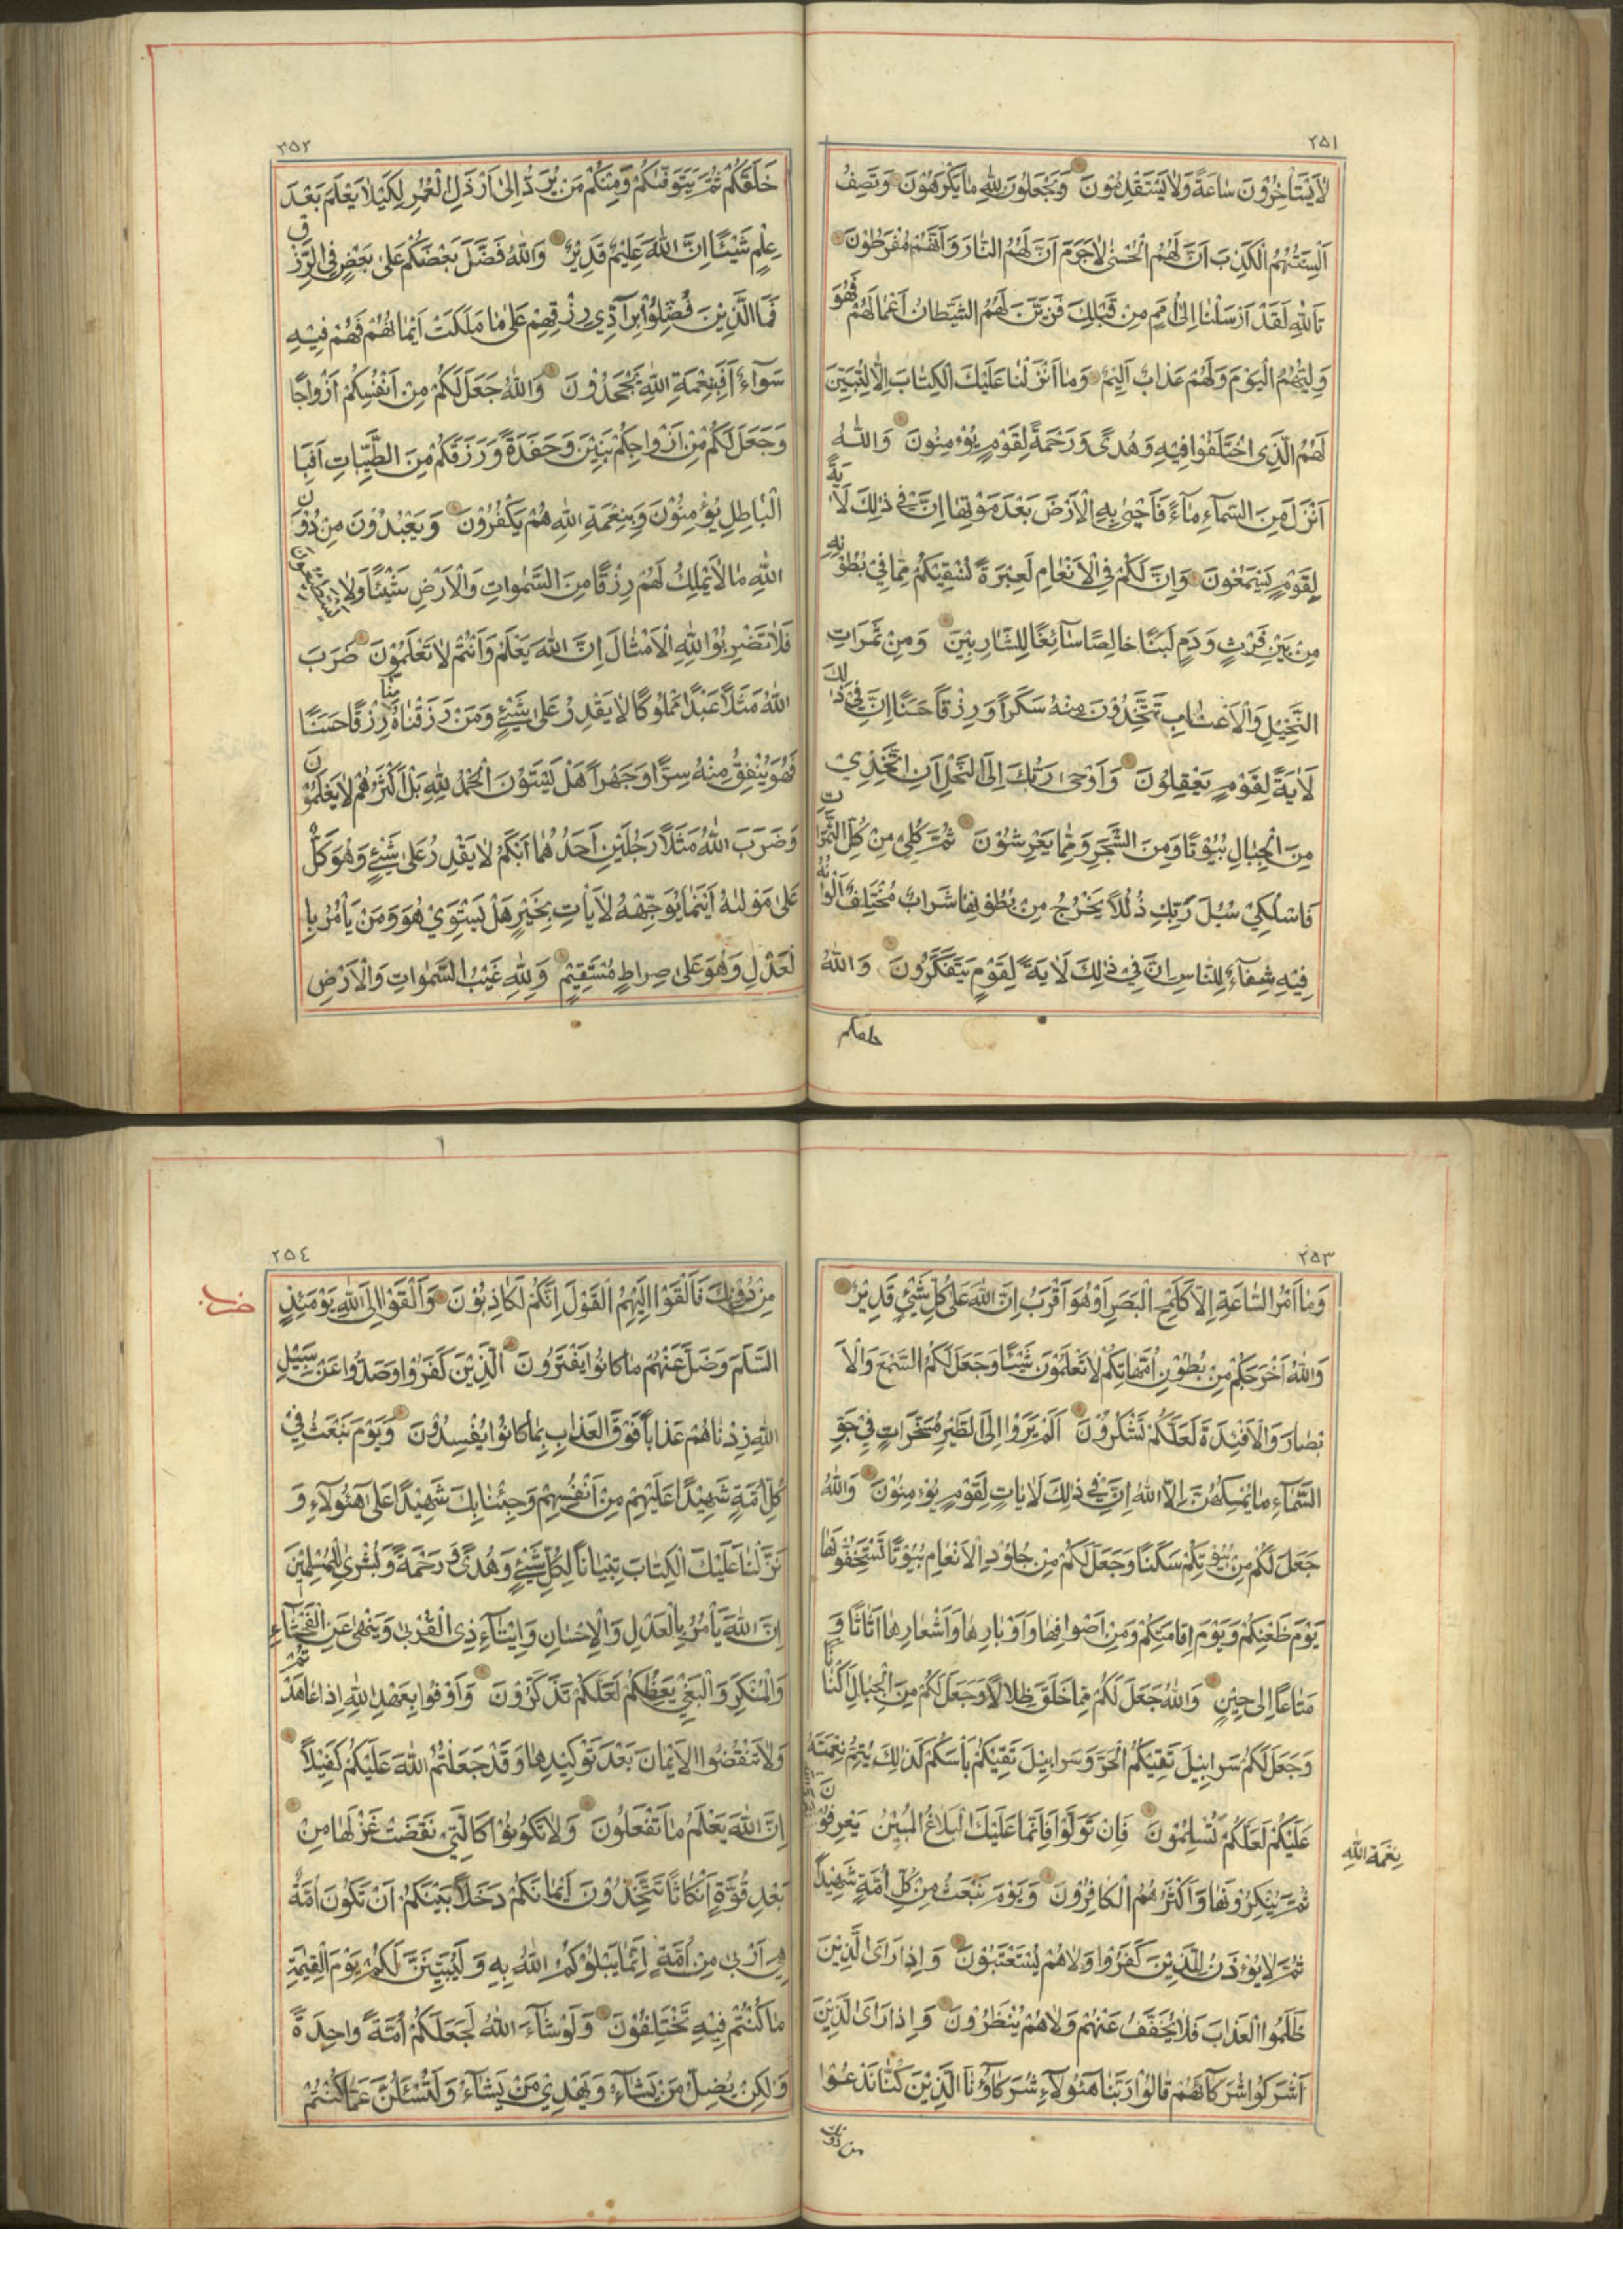 ٢٥١
لَا يَسْتَأْخِرُونَ سَاعَةً وَلَا يَسْتَقْدِمُونَ وَيَجْعَلُونَ لِلَّهِ مَا يَكْرَهُونَ وَتَصِفُ
اَلْسِنَتُهُمُ الْكَذِبَ اَنَّ لَهُمُ الْحُسْنٰى لَا جَرَمَ اَنَّ لَهُمُ النَّارَ وَاَنَّهُمْ مُفْرَطُونَ
تَاللّٰهِ لَقَدْ اَرْسَلْنَا اِلٰى اُمَمٍ مِنْ قَبْلِكَ فَزَيَّنَ لَهُمُ الشَّيْطَانُ اَعْمَالَهُمْ فَهُوَ
وَلِيُّهُمُ الْيَوْمَ وَلَهُمْ عَذَابٌ اَلِيمٌ وَمَا اَنْزَلْنَا عَلَيْكَ الْكِتَابَ اِلَّا لِتُبَيِّنَ
لَهُمُ الَّذِي اخْتَلَفُوا فِيهِ وَهُدًى وَرَحْمَةً لِقَوْمٍ يُؤْمِنُونَ وَاللّٰهُ
اَنْزَلَ مِنَ السَّمَاءِ مَاءً فَاَحْيٰى بِهِ الْاَرْضَ بَعْدَ مَوْتِهَا اِنَّ فِي ذٰلِكَ لَاٰيَةً
لِقَوْمٍ يَسْمَعُونَ وَاِنَّ لَكُمْ فِي الْاَنْعَامِ لَعِبْرَةً نُسْقِيكُمْ مِمَّا فِي بُطُونِهِ
مِنْ بَيْنِ فَرْثٍ وَدَمٍ لَبَنًا خَالِصًا سَآئِغًا لِلشَّارِبِينَ وَمِنْ ثَمَرَاتِ
النَّخِيلِ وَالْاَعْنَابِ تَتَّخِذُونَ مِنْهُ سَكَرًا وَرِزْقًا حَسَنًا اِنَّ فِي ذٰلِكَ
لَاٰيَةً لِقَوْمٍ يَعْقِلُونَ وَاَوْحٰى رَبُّكَ اِلَى النَّحْلِ اَنِ اتَّخِذِي
مِنَ الْجِبَالِ بُيُوتًا وَمِنَ الشَّجَرِ وَمِمَّا يَعْرِشُونَ ثُمَّ كُلِي مِنْ كُلِّ الثَّمَرَاتِ
فَاسْلُكِي سُبُلَ رَبِّكِ ذُلُلًا يَخْرُجُ مِنْ بُطُونِهَا شَرَابٌ مُخْتَلِفٌ اَلْوَانُهُ
فِيهِ شِفَآءٌ لِلنَّاسِ اِنَّ فِي ذٰلِكَ لَاٰيَةً لِقَوْمٍ يَتَفَكَّرُونَ وَاللّٰهُ
خلقكم
٢٥٢
خَلَقَكُمْ ثُمَّ يَتَوَفّٰىكُمْ وَمِنْكُمْ مَنْ يُرَدُّ اِلٰى اَرْذَلِ الْعُمُرِ لِكَيْلَا يَعْلَمَ بَعْدَ
عِلْمٍ شَيْئًا اِنَّ اللّٰهَ عَلِيمٌ قَدِيرٌ وَاللّٰهُ فَضَّلَ بَعْضَكُمْ عَلٰى بَعْضٍ فِي الرِّزْقِ
فَمَا الَّذِينَ فُضِّلُوا بِرَآدِّي رِزْقِهِمْ عَلٰى مَا مَلَكَتْ اَيْمَانُهُمْ فَهُمْ فِيهِ
سَوَآءٌ اَفَبِنِعْمَةِ اللّٰهِ يَجْحَدُونَ وَاللّٰهُ جَعَلَ لَكُمْ مِنْ اَنْفُسِكُمْ اَزْوَاجًا
وَجَعَلَ لَكُمْ مِنْ اَزْوَاجِكُمْ بَنِينَ وَحَفَدَةً وَرَزَقَكُمْ مِنَ الطَّيِّبَاتِ اَفَبِا
الْبَاطِلِ يُؤْمِنُونَ وَبِنِعْمَةِ اللّٰهِ هُمْ يَكْفُرُونَ وَيَعْبُدُونَ مِنْ دُونِ
اللّٰهِ مَا لَا يَمْلِكُ لَهُمْ رِزْقًا مِنَ السَّمٰوَاتِ وَالْاَرْضِ شَيْئًا وَلَا يَسْتَطِيعُونَ
فَلَا تَضْرِبُوا لِلّٰهِ الْاَمْثَالَ اِنَّ اللّٰهَ يَعْلَمُ وَاَنْتُمْ لَا تَعْلَمُونَ ضَرَبَ
اللّٰهُ مَثَلًا عَبْدًا مَمْلُوكًا لَا يَقْدِرُ عَلٰى شَيْءٍ وَمَنْ رَزَقْنَاهُ مِنَّا رِزْقًا حَسَنًا
فَهُوَ يُنْفِقُ مِنْهُ سِرًّا وَجَهْرًا هَلْ يَسْتَوُونَ الْحَمْدُ لِلّٰهِ بَلْ اَكْثَرُهُمْ لَا يَعْلَمُونَ
وَضَرَبَ اللّٰهُ مَثَلًا رَجُلَيْنِ اَحَدُهُمَا اَبْكَمُ لَا يَقْدِرُ عَلٰى شَيْءٍ وَهُوَ كَلٌّ
عَلٰى مَوْلٰىهُ اَيْنَمَا يُوَجِّهْهُ لَا يَأْتِ بِخَيْرٍ هَلْ يَسْتَوِي هُوَ وَمَنْ يَأْمُرُ بِا
لْعَدْلِ وَهُوَ عَلٰى صِرَاطٍ مُسْتَقِيمٍ وَلِلّٰهِ غَيْبُ السَّمٰوَاتِ وَالْاَرْضِ
٢٥٣
وَمَا اَمْرُ السَّاعَةِ اِلَّا كَلَمْحِ الْبَصَرِ اَوْ هُوَ اَقْرَبُ اِنَّ اللّٰهَ عَلٰى كُلِّ شَيْءٍ قَدِيرٌ
وَاللّٰهُ اَخْرَجَكُمْ مِنْ بُطُونِ اُمَّهَاتِكُمْ لَا تَعْلَمُونَ شَيْئًا وَجَعَلَ لَكُمُ السَّمْعَ وَالْاَ
بْصَارَ وَالْاَفْئِدَةَ لَعَلَّكُمْ تَشْكُرُونَ اَلَمْ يَرَوْا اِلَى الطَّيْرِ مُسَخَّرَاتٍ فِي جَوِّ
السَّمَآءِ مَا يُمْسِكُهُنَّ اِلَّا اللّٰهُ اِنَّ فِي ذٰلِكَ لَاٰيَاتٍ لِقَوْمٍ يُؤْمِنُونَ وَاللّٰهُ
جَعَلَ لَكُمْ مِنْ بُيُوتِكُمْ سَكَنًا وَجَعَلَ لَكُمْ مِنْ جُلُودِ الْاَنْعَامِ بُيُوتًا تَسْتَخِفُّونَهَا
يَوْمَ ظَعْنِكُمْ وَيَوْمَ اِقَامَتِكُمْ وَمِنْ اَصْوَافِهَا وَاَوْبَارِهَا وَاَشْعَارِهَا اَثَاثًا وَ
مَتَاعًا اِلٰى حِينٍ وَاللّٰهُ جَعَلَ لَكُمْ مِمَّا خَلَقَ ظِلَالًا وَجَعَلَ لَكُمْ مِنَ الْجِبَالِ اَكْنَانًا
وَجَعَلَ لَكُمْ سَرَابِيلَ تَقِيكُمُ الْحَرَّ وَسَرَابِيلَ تَقِيكُمْ بَأْسَكُمْ كَذٰلِكَ يُتِمُّ نِعْمَتَهُ
عَلَيْكُمْ لَعَلَّكُمْ تُسْلِمُونَ فَاِنْ تَوَلَّوْا فَاِنَّمَا عَلَيْكَ الْبَلَاغُ الْمُبِينُ يَعْرِفُونَ
نِعْمَةَ اللّٰهِ
ثُمَّ يُنْكِرُونَهَا وَاَكْثَرُهُمُ الْكَافِرُونَ وَيَوْمَ نَبْعَثُ مِنْ كُلِّ اُمَّةٍ شَهِيدًا
ثُمَّ لَا يُؤْذَنُ لِلَّذِينَ كَفَرُوا وَلَا هُمْ يُسْتَعْتَبُونَ وَاِذَا رَاَى الَّذِينَ
ظَلَمُوا الْعَذَابَ فَلَا يُخَفَّفُ عَنْهُمْ وَلَا هُمْ يُنْظَرُونَ وَاِذَا رَاَى الَّذِينَ
اَشْرَكُوا شُرَكَآءَهُمْ قَالُوا رَبَّنَا هٰٓؤُلَآءِ شُرَكَآؤُنَا الَّذِينَ كُنَّا نَدْعُوا
من دونك
٢٥٤
مِنْ دُونِكَ فَاَلْقَوْا اِلَيْهِمُ الْقَوْلَ اِنَّكُمْ لَكَاذِبُونَ وَاَلْقَوْا اِلَى اللّٰهِ يَوْمَئِذٍ
السَّلَمَ وَضَلَّ عَنْهُمْ مَا كَانُوا يَفْتَرُونَ اَلَّذِينَ كَفَرُوا وَصَدُّوا عَنْ سَبِيلِ
اللّٰهِ زِدْنَاهُمْ عَذَابًا فَوْقَ الْعَذَابِ بِمَا كَانُوا يُفْسِدُونَ وَيَوْمَ نَبْعَثُ فِي
كُلِّ اُمَّةٍ شَهِيدًا عَلَيْهِمْ مِنْ اَنْفُسِهِمْ وَجِئْنَا بِكَ شَهِيدًا عَلٰى هٰٓؤُلَآءِ وَ
نَزَّلْنَا عَلَيْكَ الْكِتَابَ تِبْيَانًا لِكُلِّ شَيْءٍ وَهُدًى وَرَحْمَةً وَبُشْرٰى لِلْمُسْلِمِينَ
اِنَّ اللّٰهَ يَأْمُرُ بِالْعَدْلِ وَالْاِحْسَانِ وَاِيتَآءِ ذِي الْقُرْبٰى وَيَنْهٰى عَنِ الْفَحْشَآءِ
وَالْمُنْكَرِ وَالْبَغْيِ يَعِظُكُمْ لَعَلَّكُمْ تَذَكَّرُونَ وَاَوْفُوا بِعَهْدِ اللّٰهِ اِذَا عَاهَدْتُمْ
وَلَا تَنْقُضُوا الْاَيْمَانَ بَعْدَ تَوْكِيدِهَا وَقَدْ جَعَلْتُمُ اللّٰهَ عَلَيْكُمْ كَفِيلًا
اِنَّ اللّٰهَ يَعْلَمُ مَا تَفْعَلُونَ وَلَا تَكُونُوا كَالَّتِي نَقَضَتْ غَزْلَهَا مِنْ
بَعْدِ قُوَّةٍ اَنْكَاثًا تَتَّخِذُونَ اَيْمَانَكُمْ دَخَلًا بَيْنَكُمْ اَنْ تَكُونَ اُمَّةٌ
هِيَ اَرْبٰى مِنْ اُمَّةٍ اِنَّمَا يَبْلُوكُمُ اللّٰهُ بِهِ وَلَيُبَيِّنَنَّ لَكُمْ يَوْمَ الْقِيٰمَةِ
مَا كُنْتُمْ فِيهِ تَخْتَلِفُونَ وَلَوْ شَآءَ اللّٰهُ لَجَعَلَكُمْ اُمَّةً وَاحِدَةً
وَلٰكِنْ يُضِلُّ مَنْ يَشَآءُ وَيَهْدِي مَنْ يَشَآءُ وَلَتُسْئَلُنَّ عَمَّا كُنْتُمْ